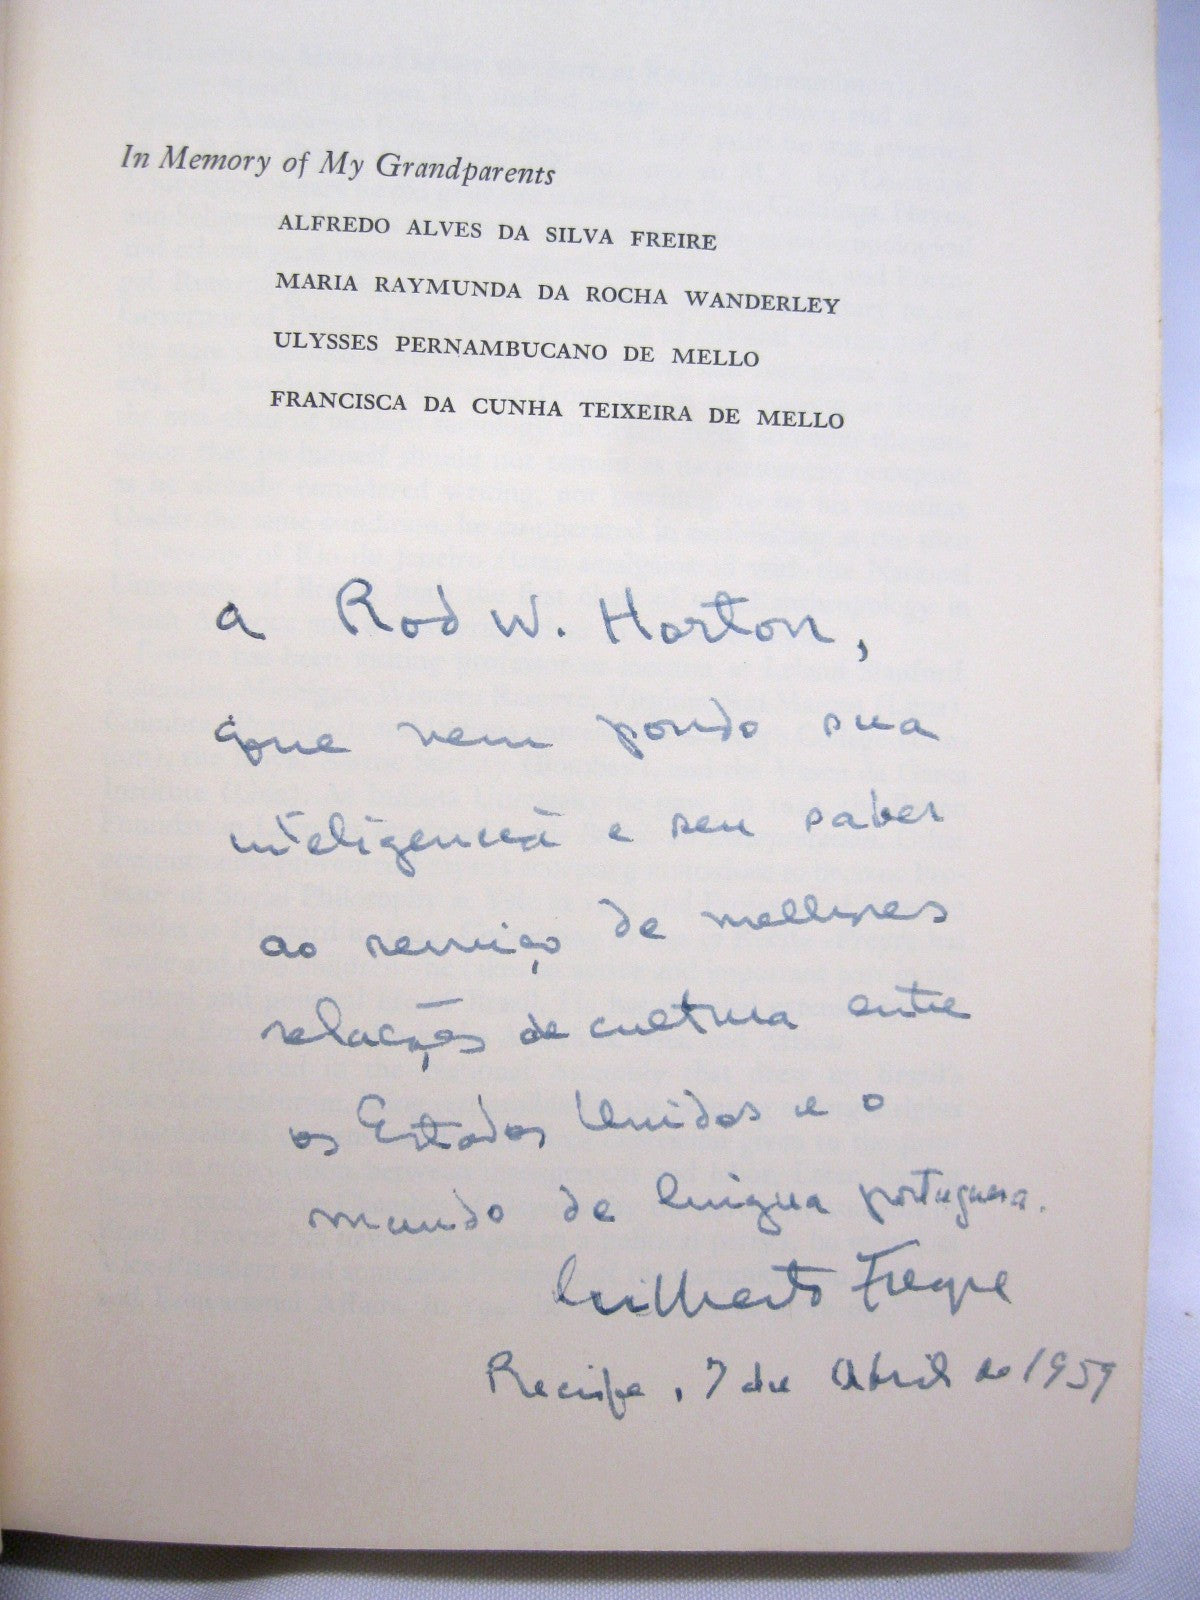 In Memory of My Grandparents
ALFREDO ALVES DA SILVA FREIRE
MARIA RAYMUNDA DA ROCHA WANDERLEY
ULYSSES PERNAMBUCANO DE MELLO
FRANCISCA DA CUNHA TEIXEIRA DE MELLO
a Rod W. Horton,
que vem pondo sua
inteligencia e seu saber
ao serviço de melhores
relações de cultura entre
os Estados Unidos e o
mundo de lingua portuguesa.
Gilberto Freyre
Recife, 7 de Abril de 1959